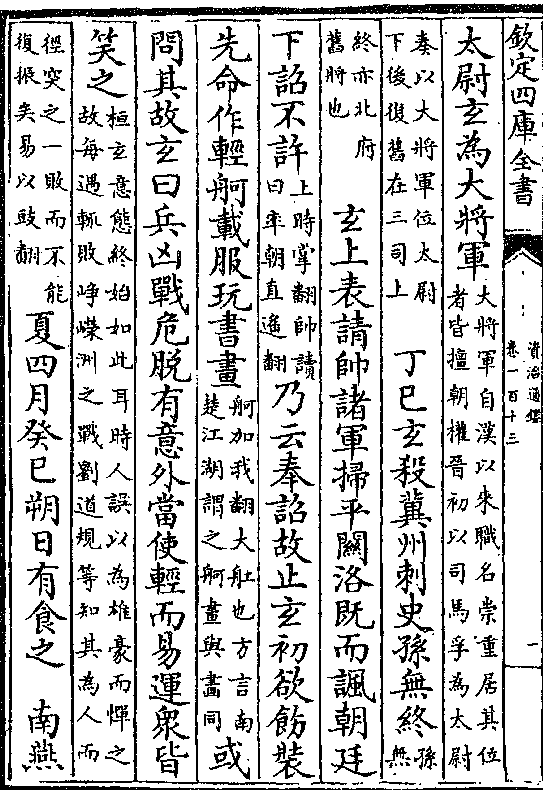 欽定四庫全書
資治通鑑
卷一百十三
一
太尉玄為大將軍大將軍自漢以來職名崇重居其位者皆擅朝權晉初以司馬孚為太尉
奏以大將軍位太尉下後復舊在三司上 丁巳玄殺冀州刺史孫無終孫無
終亦北府舊將也 玄上表請帥諸軍掃平關洛既而諷朝廷
下詔不許上時掌翻帥讀曰率朝直遙翻乃云奉詔故止玄初欲飭裝
先命作輕舸載服玩書畫舸加我翻大舡也方言南楚江湖謂之舸畫與畵同或
問其故玄曰兵凶戰危脫有意外當使輕而易運衆皆
笑之桓玄意態終始如此耳時人誤以為雄豪而憚之故每遇輒敗崢嶸洲之戰劉道規等知其為人而
徑突之一敗而不能復振矣易以豉翻夏四月癸巳朔日有食之 南燕